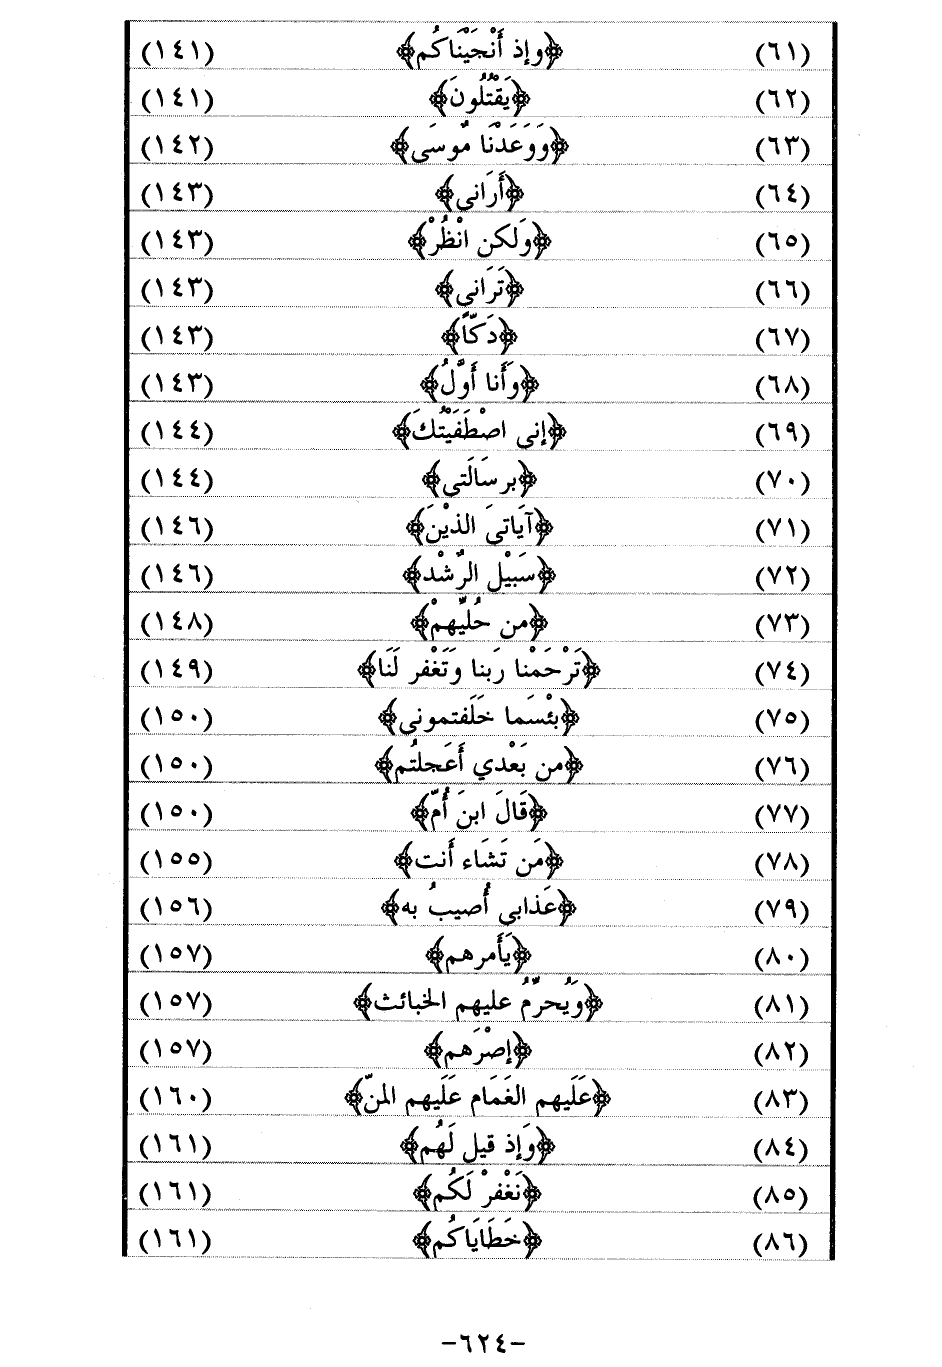 (٦١) ﴿وإذ أَنْجَيْنَاكُم﴾ (١٤١)
(٦٢) ﴿يَقْتُلُونَ﴾ (١٤١)
(٦٣) ﴿وَوَعَدْنَا مُوسَى﴾ (١٤٢)
(٦٤) ﴿أَرَاني﴾ (١٤٣)
(٦٥) ﴿وَلكن انْظُرْ﴾ (١٤٣)
(٦٦) ﴿تَرَاني﴾ (١٤٣)
(٦٧) ﴿دَكّاً﴾ (١٤٣)
(٦٨) ﴿وَأَنا أَوَّلُ﴾ (١٤٣)
(٦٩) ﴿إني اصْطَفَيْتُكَ﴾ (١٤٤)
(٧٠) ﴿برسَالَتي﴾ (١٤٤)
(٧١) ﴿آيَاتيَ الذيْنَ﴾ (١٤٦)
(٧٢) ﴿سَبيْل الرُشْد﴾ (١٤٦)
(٧٣) ﴿من حُليّهمْ﴾ (١٤٨)
(٧٤) ﴿تَرْحَمْنا رَبنا وَتَغْفر لَنَا﴾ (١٤٩)
(٧٥) ﴿بئْسَما خَلَفتموني﴾ (١٥٠)
(٧٦) ﴿من بَعْدي أَعَجلتُم﴾ (١٥٠)
(٧٧) ﴿قَالَ ابنَ أُمّ﴾ (١٥٠)
(٧٨) ﴿مَن تَشَاء أَنت﴾ (١٥٥)
(٧٩) ﴿عَذابي أُصيبُ به﴾ (١٥٦)
(٨٠) ﴿يَأَمرهم﴾ (١٥٧)
(٨١) ﴿وَيُحرّمُ عليهم الخبائث﴾ (١٥٧)
(٨٢) ﴿إصْرَهم﴾ (١٥٧)
(٨٣) ﴿عَلَيهم الغَمَام عَلَيهم المنّ﴾ (١٦٠)
(٨٤) ﴿وَإذ قيل لَهُم﴾ (١٦١)
(٨٥) ﴿نَغْفرْ لَكُم﴾ (١٦١)
(٨٦) ﴿خَطَايَاكُم﴾ (١٦١)
-٦٢٤-